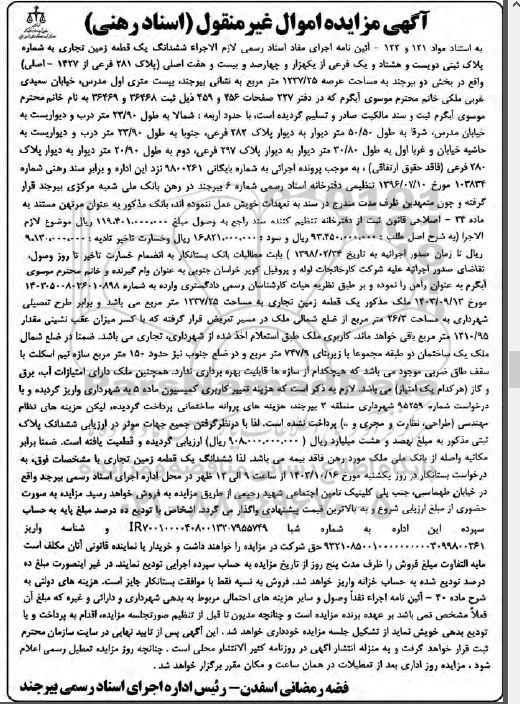 آگهی مزایده اموال غیرمنقول (اسناد رهنی)
به استناد مواد ۱۲۱ و ۱۲۲ - آئین نامه اجرای مفاد اسناد رسمی لازم الاجراء ششدانگ یک قطعه زمین تجاری به شماره
پلاک ثبتی دویست و هشتاد و یک فرعی از یکهزار و چهارصد و بیست و هفت اصلی (پلاک ۲۸۱ فرعی از ۱۴۲۷ - اصلی)
واقع در بخش دو بیرجند به مساحت عرصه ۱۲۳۷/۲۵ متر مربع به نشانی بیرجند، بیست متری اول مدرس، خیابان سعیدی
غربی ملکی خانم محترم موسوی آبگرم که در دفتر ۲۲۷ صفحات ۴۵۶ و ۴۵۹ ذیل ثبت ۳۶۴۶۸ و ۳۶۴۶۹ به نام خانم محترم
موسوی آبگرم ثبت و سند مالکیت صادر و تسلیم گردیده است، با حدود اربعه : شمالا به طول ۲۳/۹۰ متر درب و دیواریست به
خیابان مدرس، شرقا به طول ۵۰/۵۰ متر دیوار به دیوار پلاک ۲۸۲ فرعی، جنوبا به طول ۲۳/۹۰ متر درب و دیواریست به
حاشیه خیابان و غربا اول به طول ۳۰/۸۰ متر دیوار به دیوار پلاک ۲۹۷ فرعی، دوم به طول ۲۰/۹۰ متر دیوار به دیوار پلاک
۲۸۰ فرعی (فاقد حقوق ارتفاقی) ، به موجب پرونده اجرائی به شماره بایگانی ۹۸۰۰۲۶۱ نزد این اداره و برابر سند رهنی شماره
۱۰۳۸۳۴ مورخ ۱۳۹۶/۰۷/۱۰ تنظیمی دفترخانه اسناد رسمی شماره ۶ بیرجند در رهن بانک ملی شعبه مرکزی بیرجند قرار
گرفته و چون متعهدین ظرف مدت مندرج در سند به تعهدات خویش عمل ننموده اند، بانک مذکور به عنوان مرتهن مستند به
ماده ۳۴ - اصلاحی قانون ثبت از دفترخانه تنظیم کننده سند راجع به وصول مبلغ ۱۱۹.۴۰۱.۰۰۰.۰۰۰ ریال موضوع لازم
الاجرا (به شرح اصل طلب : ۹۳.۴۵۰.۰۰۰.۰۰۰ ریال و سود : ۱۶.۸۲۱.۰۰۰.۰۰۰ ریال وخسارت تاخیر تادیه : ۹.۱۳۰.۰۰۰.۰۰۰
ریال تا زمان صدور اجرائیه به تاریخ ۱۳۹۸/۰۲/۲۴ ) بابت مطالبات بانک بستانکار به انضمام خسارت تاخیر تا روز وصول،
تقاضای صدور اجرائیه علیه شرکت کارخانجات لوله و پروفیل کویر خراسان جنوبی به عنوان وام گیرنده و خانم محترم موسوی
آبگرم به عنوان راهن را نموده و بر طبق نظریه هیات کارشناسان رسمی دادگستری وارده به شماره
مورخ ۱۴۰۳/۰۹/۱۲ ملک مذکور یک قطعه زمین تجاری به مساحت ۱۲۳۷/۲۵ متر مربع می باشد و برابر طرح تفصیلی
شهرداری به مساحت ۲۶/۳ متر مربع از ضلع شمالی ملک در مسیر تعریض قرار گرفته که با کسر میزان عقب نشینی مقدار
۱۲۱۰/۹۵ متر مربع باقی خواهد ماند. کاربری ملک طبق استعلام اخذ شده از شهرداری، تجاری می باشد. ضمنا در ضلع شمال
ملک یک ساختمان دو طبقه مجموعا با زیربنای ۷۴۷/۹ متر مربع و در ضلع جنوب نیز حدود ۱۵۰ متر مربع سازه نیم اسکلت با
سقف طاق ضربی موجود می باشد که هیچکدام از سازه ها قابلیت بهره برداری ندارد. همچنین ملک دارای امتیازات آب، برق
و گاز (هرکدام یک امتیاز) می باشد. لازم به ذکر است که هزینه تغییر کاربری کمیسیون ماده ۵ به شهرداری واریز گردیده و با
درخواست شماره ۹۵۲۵۹ شهرداری منطقه ۲ بیرجند، هزینه های پروانه ساختمانی پرداخت گردیده، لیکن هزینه های نظام
مهندسی (طراحی، نظارت و مجری و ..) پرداخت نشده است. لذا با درنظرگرفتن جمیع جهات موثر در ارزیابی ششدانگ پلاک
ثبتی مذکور به مبلغ نهصد و هشت میلیارد ریال ( ۹۰۸.۰۰۰.۰۰۰.۰۰۰ ریال) ارزیابی گردیده و قطعیت یافته است. ضمنا برابر
مکاتبه واصله از بانک ملی ملک مورد رهن فاقد بیمه می باشد. لذا ششدانگ یک قطعه زمین تجاری با مشخصات فوق، به
درخواست بستانکار در روز یکشنبه مورخ ۱۴۰۳/۱۰/۱۶ از ساعت ۹ الی ۱۲ ظهر در محل اداره اجرای اسناد رسمی بیرجند واقع
در خیابان طهماسبی، جنب پلی کلینیک تامین اجتماعی شهید رحیمی از طریق مزایده به فروش خواهد رسید. مزایده به صورت
حضوری از مبلغ ارزیابی شروع و به بالاترین قیمت پیشنهادی واگذار می گردد. اشخاص با تودیع ده درصد مبلغ پایه به حساب
سپرده این اداره به شماره شبا و شناسه واریز
حق شرکت در مزایده را خواهند داشت و خریدار یا نماینده قانونی آنان مکلف است
مابه التفاوت مبلغ فروش را ظرف مدت پنج روز از تاریخ مزایده به حساب سپرده اجرایی تودیع نمایند. در غیر اینصورت مبلغ ده
درصد تودیع شده به حساب خزانه واریز خواهد شد. فروش به نسیه فقط با موافقت بستانکار جایز است. هزینه های دولتی به
شرح ماده ۴۰ - آئین نامه اجرای اسناد نقداً وصول و سایر هزینه های احتمالی مربوط به بدهی شهرداری و دارائی و غیره که مبلغ آن
فعلاً مشخص نمی باشد بر عهده برنده مزایده است و چنانچه مدیون تا قبل از تنظیم صورتجلسه مزایده، اقدام به پرداخت و یا
تودیع بدهی خویش نماید از تشکیل جلسه مزایده خودداری خواهد شد. این آگهی پس از تایید نهایی در سایت سازمان محترم
ثبت قرار خواهد گرفت و به منزله انتشار آگهی در روزنامه کثیر الانتشار محلی است . چنانچه روز مزایده تعطیل رسمی اعلام
شود ، مزایده روز اداری بعد از تعطیلات در همان ساعت و مکان مقرر برگزار خواهد شد .
فضه رمضانی اسفدن- رئیس اداره اجرای اسناد رسمی بیرجند